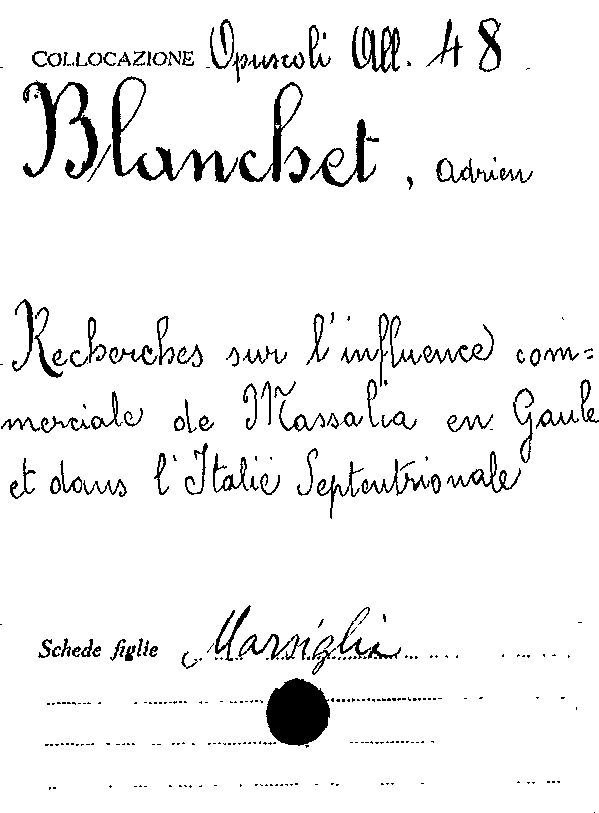 COLLOCAZIONE Opuscoli All. 48
Blanchet, Adrien
Recherches sur l'influence com=
merciale de Massalia en Gaule
et dans l'Italie Septentrionale
Schede figlie Marsiglia